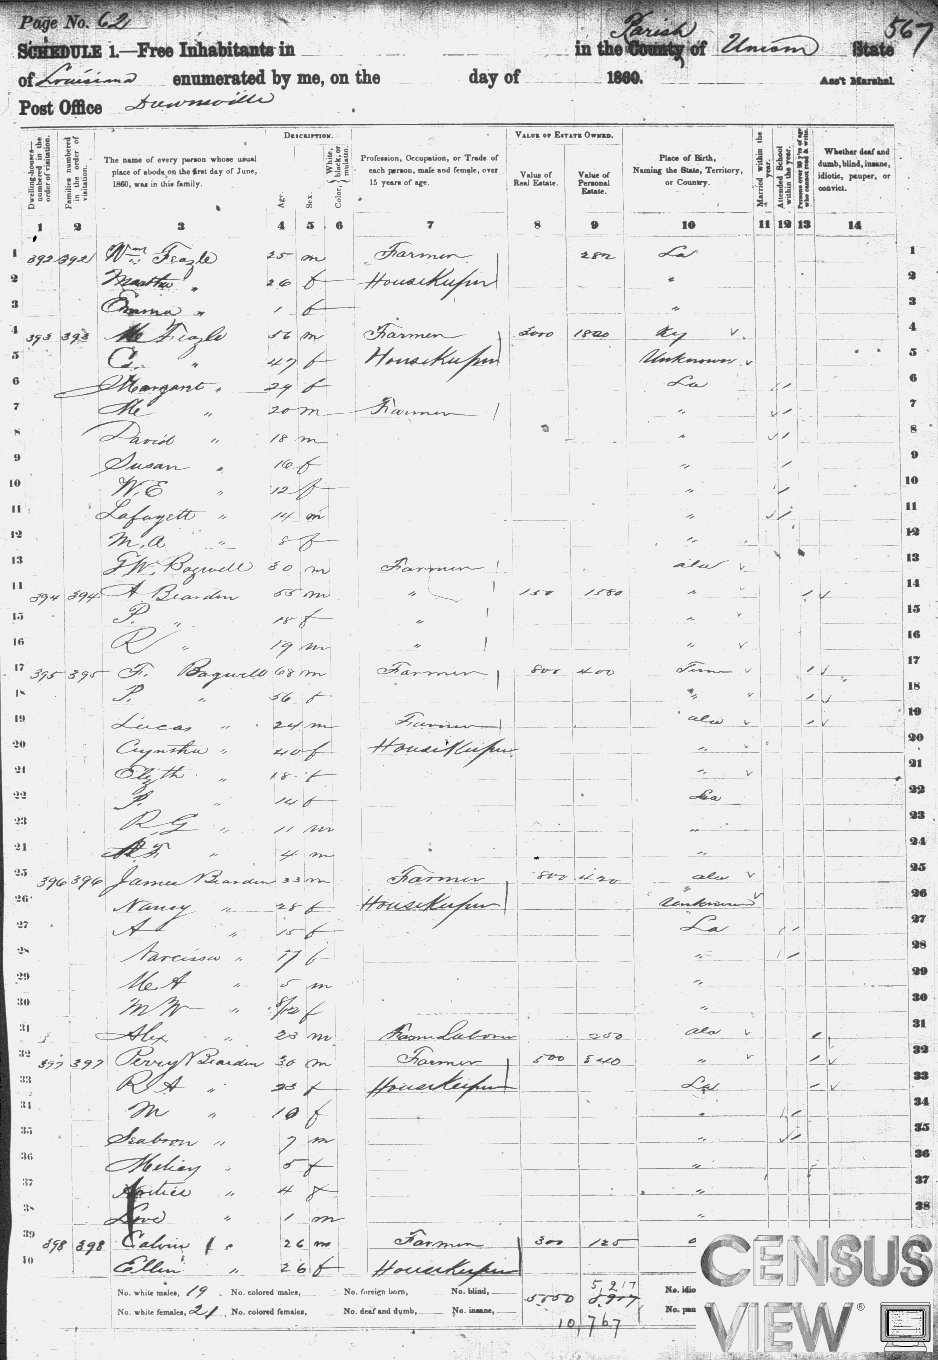 Page No. 62
567
SCHEDULE 1.—Free Inhabitants in in the County Parish of Union State
of Louisiana enumerated by me, on the day of 1860. Ass't Marshal.
Post Office Downsville
DESCRIPTION. VALUE OF ESTATE OWNED.
Dwelling-houses— numbered in the order of visitation.
Families numbered in the order of visitation.
The name of every person whose usual place of abode on the first day of June, 1860, was in this family.
Age.
Sex.
Color, White, black, or mulatto.
Profession, Occupation, or Trade of each person, male and female, over 15 years of age.
Value of Real Estate.
Value of Personal Estate.
Place of Birth, Naming the State, Territory, or Country.
Married within the year.
Attended School within the year.
Persons over 20 y'rs of age who cannot read & write.
Whether deaf and dumb, blind, insane, idiotic, pauper, or convict.
1 2 3 4 5 6 7 8 9 10 11 12 13 14
1 392 392 Wm Feazle 25 m Farmer 282 La 1
2 Martha " 26 f HouseKeeper " 2
3 Emma " 1 f " 3
4 393 393 Feazle 56 m Farmer 3000 1820 Ky 4
5 C. " 47 f HouseKeeper Unknown 5
6 Margaret " 29 f La / 6
7 " 20 m Farmer " / 7
8 David " 18 m " / 8
9 Susan " 16 f " / 9
10 W.E " 12 f " / 10
11 Lafayett " 14 m " / 11
12 M.A " 8 f " 12
13 G.W. Bagwell 30 m Farmer ala 13
14 394 394 A Bearden 55 m " 150 1580 " / 14
15 P. " 18 f " " 15
16 R " 19 m " " 16
17 395 395 F. Bagwell 68 m Farmer 800 400 Tenn / 17
18 P. " 56 f " / 18
19 Lucas " 24 m Farmer ala / 19
20 Cynthia " 40 f HouseKeeper " 20
21 " 18 f " 21
22 P. " 14 f La 22
23 R G " 11 m " 23
24 " 4 m " 24
25 396 396 James Bearden 33 m Farmer 800 420 ala 25
26 Nancy " 28 f HouseKeeper Unknown 26
27 A " 15 f La / 27
28 Narcissa " 7 f " / 28
29 M. A " 5 m " 29
30 M W " 8/12 f " 30
31 Alex " 23 m Farm Laborer 250 ala / 31
32 397 397 Perry Bearden 30 m Farmer 500 540 " / 32
33 R A " 23 f HouseKeeper La / 33
34 M " 10 f " / 34
35 Seaborn " 7 m " / 35
36 " 5 f " 36
37 " 4 f " 37
38 Love " 1 m " 38
39 398 398 Calvin " 26 m Farmer 300 125
40 Ellin " 26 f HouseKeeper
No. white males, 19 No. colored males, No. foreign born, No. blind, 5,217 No. idio
No. white females, 21 No. colored females, No. deaf and dumb, No. insane, 5550 No. pau
10,767
CENSUS
VIEW®